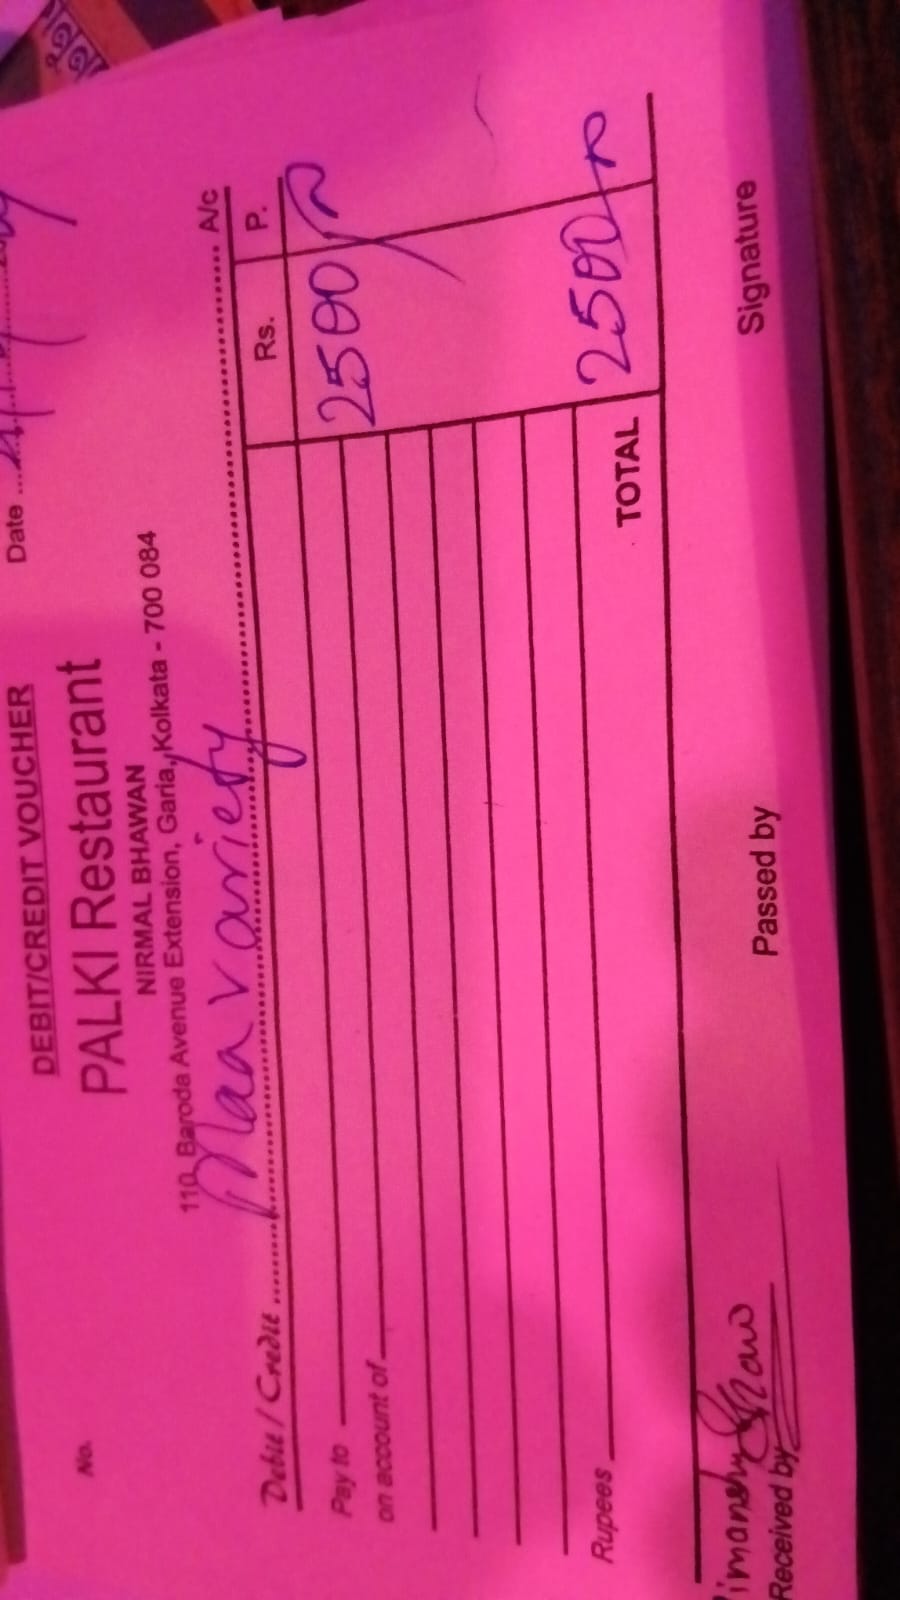 DEBIT/CREDIT VOUCHER
No.
Date
PALKI Restaurant
NIRMAL BHAWAN
110, Baroda Avenue Extension, Garia, Kolkata - 700 084
Debit / Credit Maa variety A/c
Rs. P.
Pay to 2500
on account of
Rupees
TOTAL 2500
imanshu Shaw
Received by Passed by Signature